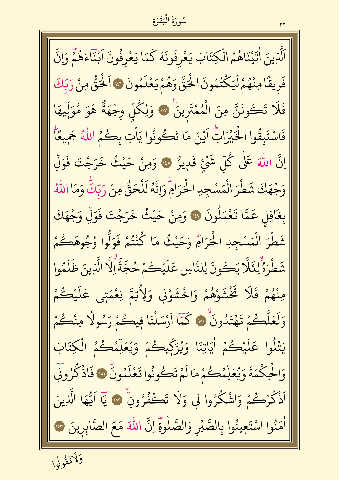 سُورَةُ الْبَقَرَةِ
٢٢
اَلَّذٖينَ اٰتَيْنَاهُمُ الْكِتَابَ يَعْرِفُونَهُ كَمَا يَعْرِفُونَ اَبْنَٓاءَهُمْۜ وَاِنَّ
فَرٖيقاً مِنْهُمْ لَيَكْتُمُونَ الْحَقَّ وَهُمْ يَعْلَمُونَ ١٤٦ اَلْحَقُّ مِنْ رَبِّكَ
فَلَا تَكُونَنَّ مِنَ الْمُمْتَرٖينَ ١٤٧ وَلِكُلٍّ وِجْهَةٌ هُوَ مُوَلّٖيهَا
فَاسْتَبِقُوا الْخَيْرَاتِۜ اَيْنَ مَا تَكُونُوا يَأْتِ بِكُمُ اللّٰهُ جَمٖيعاًۜ
اِنَّ اللّٰهَ عَلٰى كُلِّ شَيْءٍ قَدٖيرٌ ١٤٨ وَمِنْ حَيْثُ خَرَجْتَ فَوَلِّ
وَجْهَكَ شَطْرَ الْمَسْجِدِ الْحَرَامِۜ وَاِنَّهُ لَلْحَقُّ مِنْ رَبِّكَۜ وَمَا اللّٰهُ
بِغَافِلٍ عَمَّا تَعْمَلُونَ ١٤٩ وَمِنْ حَيْثُ خَرَجْتَ فَوَلِّ وَجْهَكَ
شَطْرَ الْمَسْجِدِ الْحَرَامِۜ وَحَيْثُ مَا كُنْتُمْ فَوَلُّوا وُجُوهَكُمْ
شَطْرَهُۙ لِئَلَّا يَكُونَ لِلنَّاسِ عَلَيْكُمْ حُجَّةٌۗ اِلَّا الَّذٖينَ ظَلَمُوا
مِنْهُمْ فَلَا تَخْشَوْهُمْ وَاخْشَوْنٖي وَلِاُتِمَّ نِعْمَتٖي عَلَيْكُمْ
وَلَعَلَّكُمْ تَهْتَدُونَۙ ١٥٠ كَمَٓا اَرْسَلْنَا فٖيكُمْ رَسُولاً مِنْكُمْ
يَتْلُوا عَلَيْكُمْ اٰيَاتِنَا وَيُزَكّٖيكُمْ وَيُعَلِّمُكُمُ الْكِتَابَ
وَالْحِكْمَةَ وَيُعَلِّمُكُمْ مَا لَمْ تَكُونُوا تَعْلَمُونَۜ ١٥١ فَاذْكُرُونٖٓي
اَذْكُرْكُمْ وَاشْكُرُوا لٖي وَلَا تَكْفُرُونِ ١٥٢ يَٓا اَيُّهَا الَّذٖينَ
اٰمَنُوا اسْتَعٖينُوا بِالصَّبْرِ وَالصَّلٰوةِۜ اِنَّ اللّٰهَ مَعَ الصَّابِرٖينَ ١٥٣
وَلَا تَقُولُوا